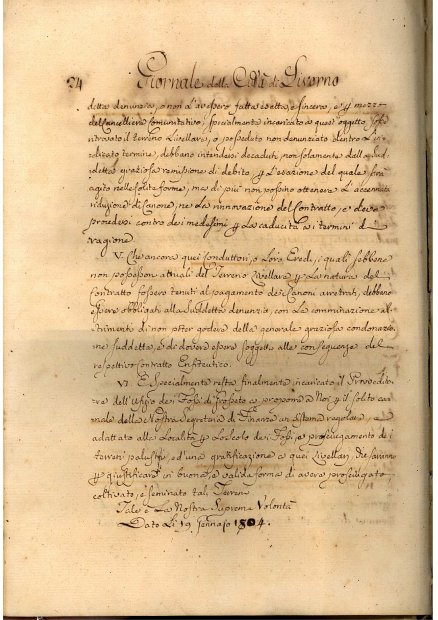 24 Giornale della Città di Livorno
detta denunzia, o non l'avessero fatta esatta, e sincera, e p mezzo
del Cancelliere Comunitativo, specialmente incaricato a quest'oggetto, fosse
ritrovato il terreno Livellare, o posseduto non denunziato dentro l'in-
dicato termine, debbano intendersi decaduti non solamente dalla sud-
detta graziosa remissione di debito, p l'esazione del quale sarà
agito nelle solite forme, ma di più non possino ottenere l'accennata
riduzione di Canone, ne la rinnovazione del Contratto, e deva
procedersi contro dei medesimi p la caducità a i termini di
ragione
V. Che ancora quei conduttori, o loro Eredi, i quali sebbene
non possessori attuali del Terreno Livellare p la natura del
Contratto fossero tenuti al pagamento dei Canoni arretrati, debbano
essere obbligati alla suddetta denunzia, con la comminazione al-
trimenti di non poter godere della generale graziosa condonazio-
ne suddetta, e di dovere essere soggetti alle conseguenze del
respettivo contratto Enfiteutico.
VI. E Specialmente resta finalmente incaricato il Provedito-
re dell'Ufizio dei Fossi di proporre a Noi p il solito ca-
nale della Nostra Segreteria di Finanze un sistema regolare, e
adattato alla località p lo scolo dei Fossi, e prosciugamento di
terreni palustri, e d'una gratificazione a quei Livellari, che saranno
p giustificare in buona, e valida forma di avere prosciugato
coltivato, e seminato tali Terreni
Tale è La Nostra Suprema Volontà
Dato Li 19 Gennajo 1804.